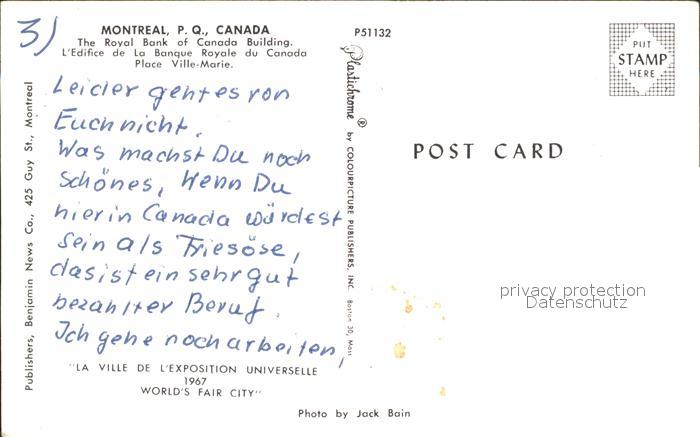 3)
MONTREAL, P. Q., CANADA
The Royal Bank of Canada Building.
L'Edifice de La Banque Royale du Canada
Place Ville-Marie.
P51132
PUT
STAMP
HERE
POST CARD
Leider geht es von
Euch nicht.
Was machst Du noch
schönes, Wenn Du
hier in Canada würdest
sein als Friesöse,
das ist ein sehr gut
bezahlter Beruf.
Ich gehe noch arbeiten,
"LA VILLE DE L'EXPOSITION UNIVERSELLE
1967
WORLD'S FAIR CITY"
Photo by Jack Bain
Publishers, Benjamin News Co., 425 Guy St., Montreal
Plastichrome ® by COLOURPICTURE PUBLISHERS, INC. Boston 30, Mass.
privacy protection
Datenschutz